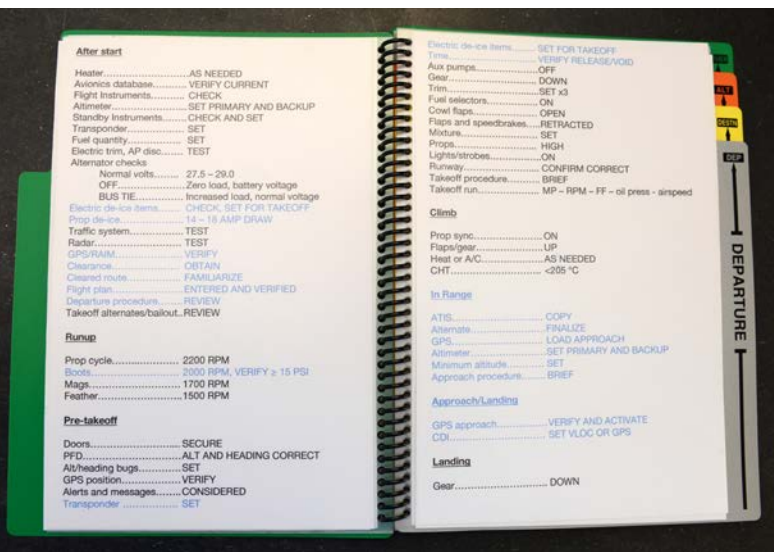 After start
Heater.....................AS NEEDED
Avionics database......... VERIFY CURRENT
Flight Instruments........... CHECK
Altimeter.......................SET PRIMARY AND BACKUP
Standby Instruments.....CHECK AND SET
Transponder................. SET
Fuel quantity................. SET
Electric trim, AP disc....... TEST
Alternator checks
Normal volts....... 27.5 – 29.0
OFF...................Zero load, battery voltage
BUS TIE..............Increased load, normal voltage
Electric de-ice items....... CHECK, SET FOR TAKEOFF
Prop de-ice................... 14 – 18 AMP DRAW
Traffic system................TEST
Radar...........................TEST
GPS/RAIM.................... VERIFY
Clearance..................... OBTAIN
Cleared route................ FAMILIARIZE
Flight plan.................... ENTERED AND VERIFIED
Departure procedure.......REVIEW
Takeoff alternates/bailout..REVIEW
Runup
Prop cycle..................... 2200 RPM
Boots........................... 2000 RPM, VERIFY ≥ 15 PSI
Mags............................ 1700 RPM
Feather.........................1500 RPM
Pre-takeoff
Doors...........................SECURE
PFD..............................ALT AND HEADING CORRECT
Alt/heading bugs.............SET
GPS position..................VERIFY
Alerts and messages........CONSIDERED
Transponder ................. SET
Electric de-ice items........ SET FOR TAKEOFF
Time.............................VERIFY RELEASE/VOID
Aux pumps....................OFF
Gear.............................DOWN
Trim..............................SET x3
Fuel selectors.................ON
Cowl flaps......................OPEN
Flaps and speedbrakes....RETRACTED
Mixture.........................SET
Props............................HIGH
Lights/strobes.................ON
Runway.........................CONFIRM CORRECT
Takeoff procedure...........BRIEF
Takeoff run.................... MP – RPM – FF – oil press - airspeed
Climb
Prop sync......................ON
Flaps/gear.....................UP
Heat or A/C....................AS NEEDED
CHT..............................<205 °C
In Range
ATIS..............................COPY
Alternate.......................FINALIZE
GPS..............................LOAD APPROACH
Altimeter........................SET PRIMARY AND BACKUP
Minimum altitude............SET
Approach procedure........BRIEF
Approach/Landing
GPS approach................VERIFY AND ACTIVATE
CDI............................... SET VLOC OR GPS
Landing
Gear............................. DOWN
ALT
DESTN
DEP
DEPARTURE